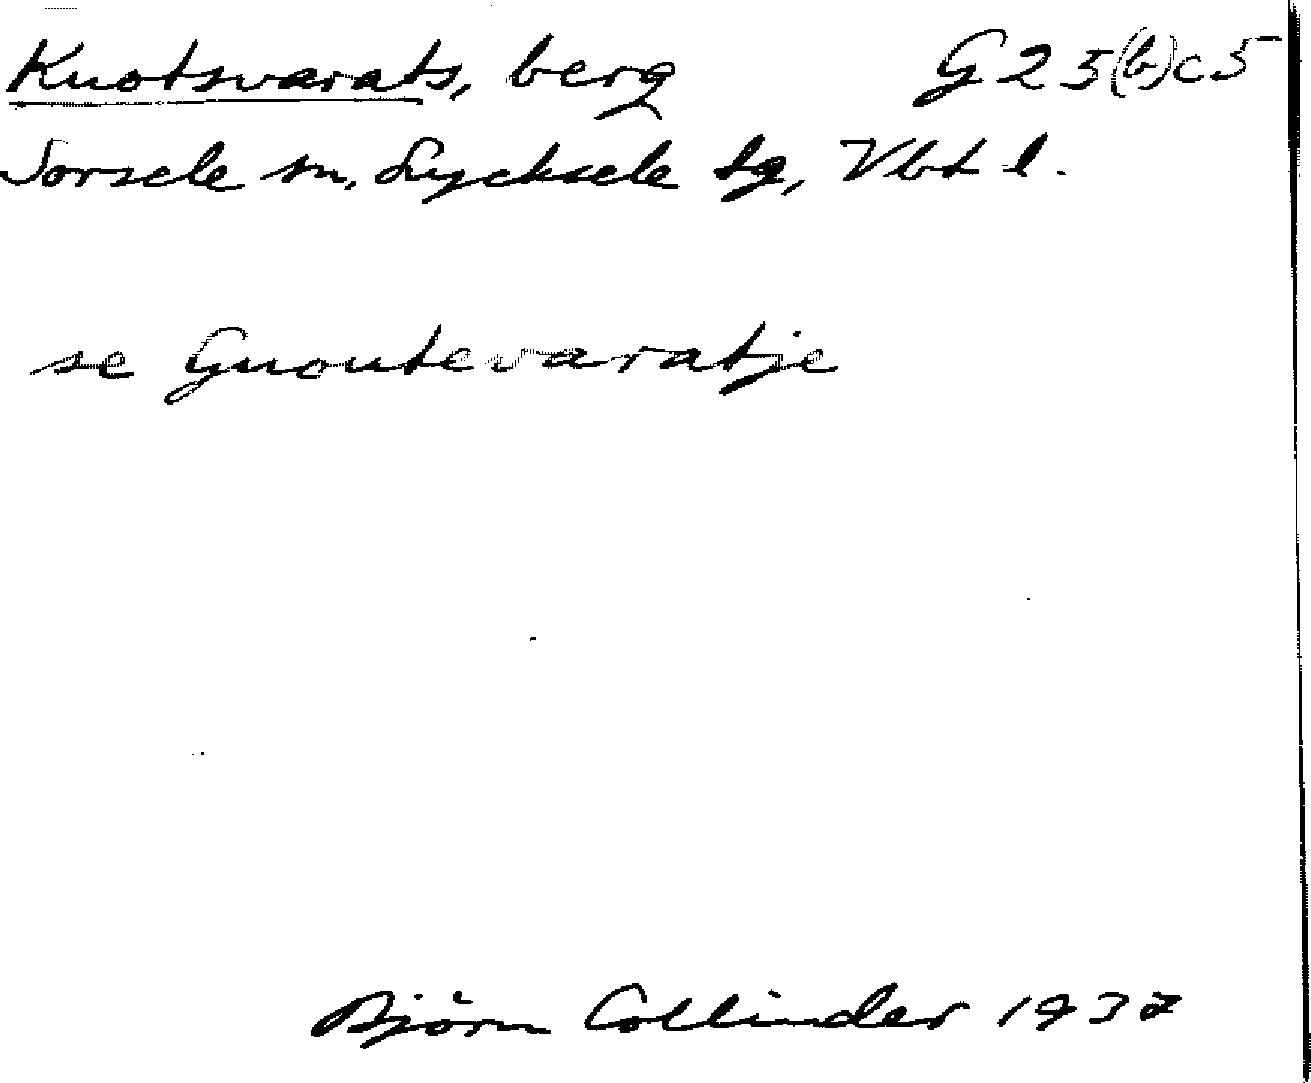 Knotsvarats, berg G25(b)c5
Sorsele sn, Lycksele lg, Vbtl.
se Gnoutevaratje
Björn Collinder 1937